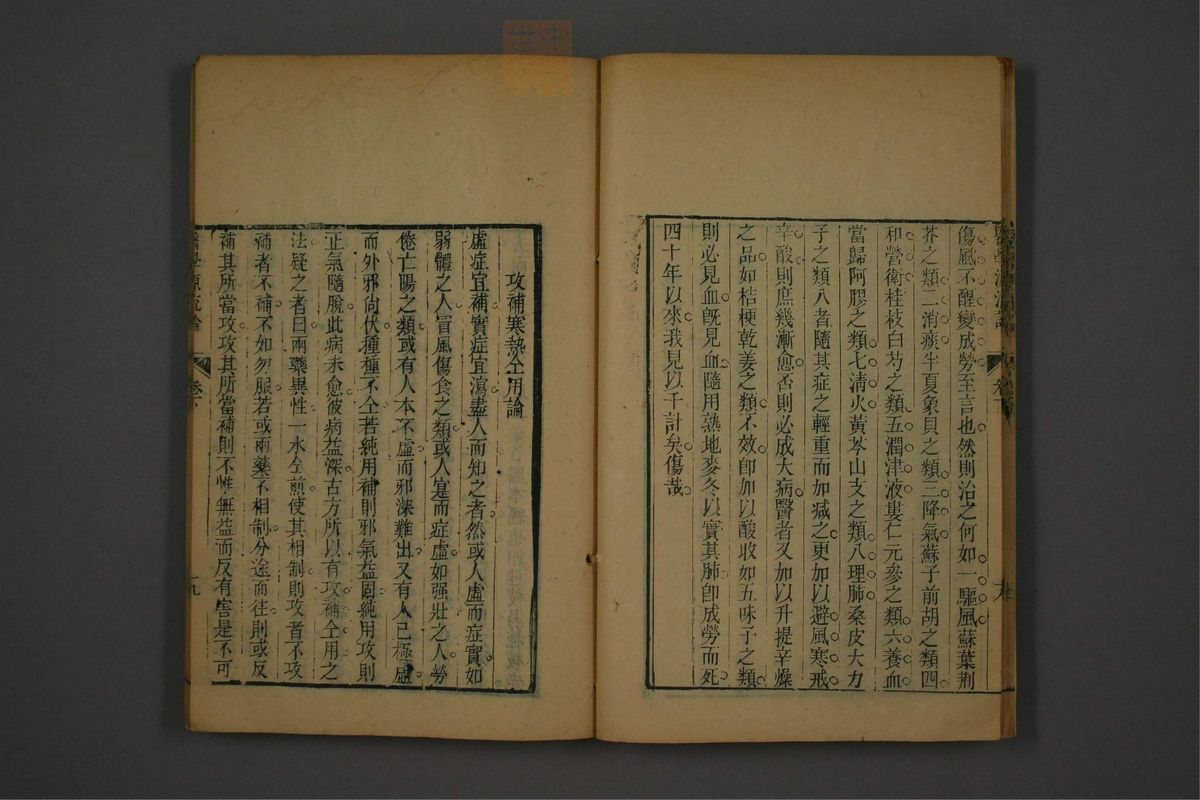 傷風不醒變成勞至言也然則治之何如一驅風蘇葉荆
芥之類二消痰半夏象貝之類三降氣蘇子前胡之類四
和營衛桂枝白芍之類五潤津液蔞仁元參之類六養血
當歸阿膠之類七清火黃芩山支之類八理肺桑皮大力
子之類八者隨其症之輕重而加減之更加以避風寒戒
辛酸則庶幾漸愈否則必成大病醫者又加以升提辛燥
之品如桔梗乾姜之類不效卽加以酸收如五味子之類
則必見血旣見血隨用熟地麥冬以實其肺卽成勞而死
四十年以來我見以千計矣傷哉
攻補寒熱仝用論
虛症宜補實症宜瀉盡人而知之者然或人虛而症實如
弱體之人冒風傷食之類或人寔而症虛如强壯之人勞
倦亡陽之類或有人本不虛而邪深難出又有人已極虛
而外邪尙伏種種不仝若純用補則邪氣益固純用攻則
正氣隨脫此病未愈彼病益深古方所以有攻補仝用之
法疑之者曰兩藥異性一水仝煎使其相制則攻者不攻
補者不補不如勿服若或兩藥不相制分途而往則或反
補其所當攻攻其所當補則不惟無益而反有害是不可
醫學源流論
卷下
九